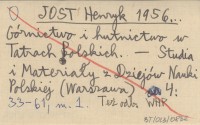 JOST Henryk 1956..
Górnictwo i hutnictwo w
Tatrach Polskich. — Studia
i Materiały z Dziejów Nauki
Polskiej (Warszawa) 4:
33-61, m. 1. Też odb. WAR